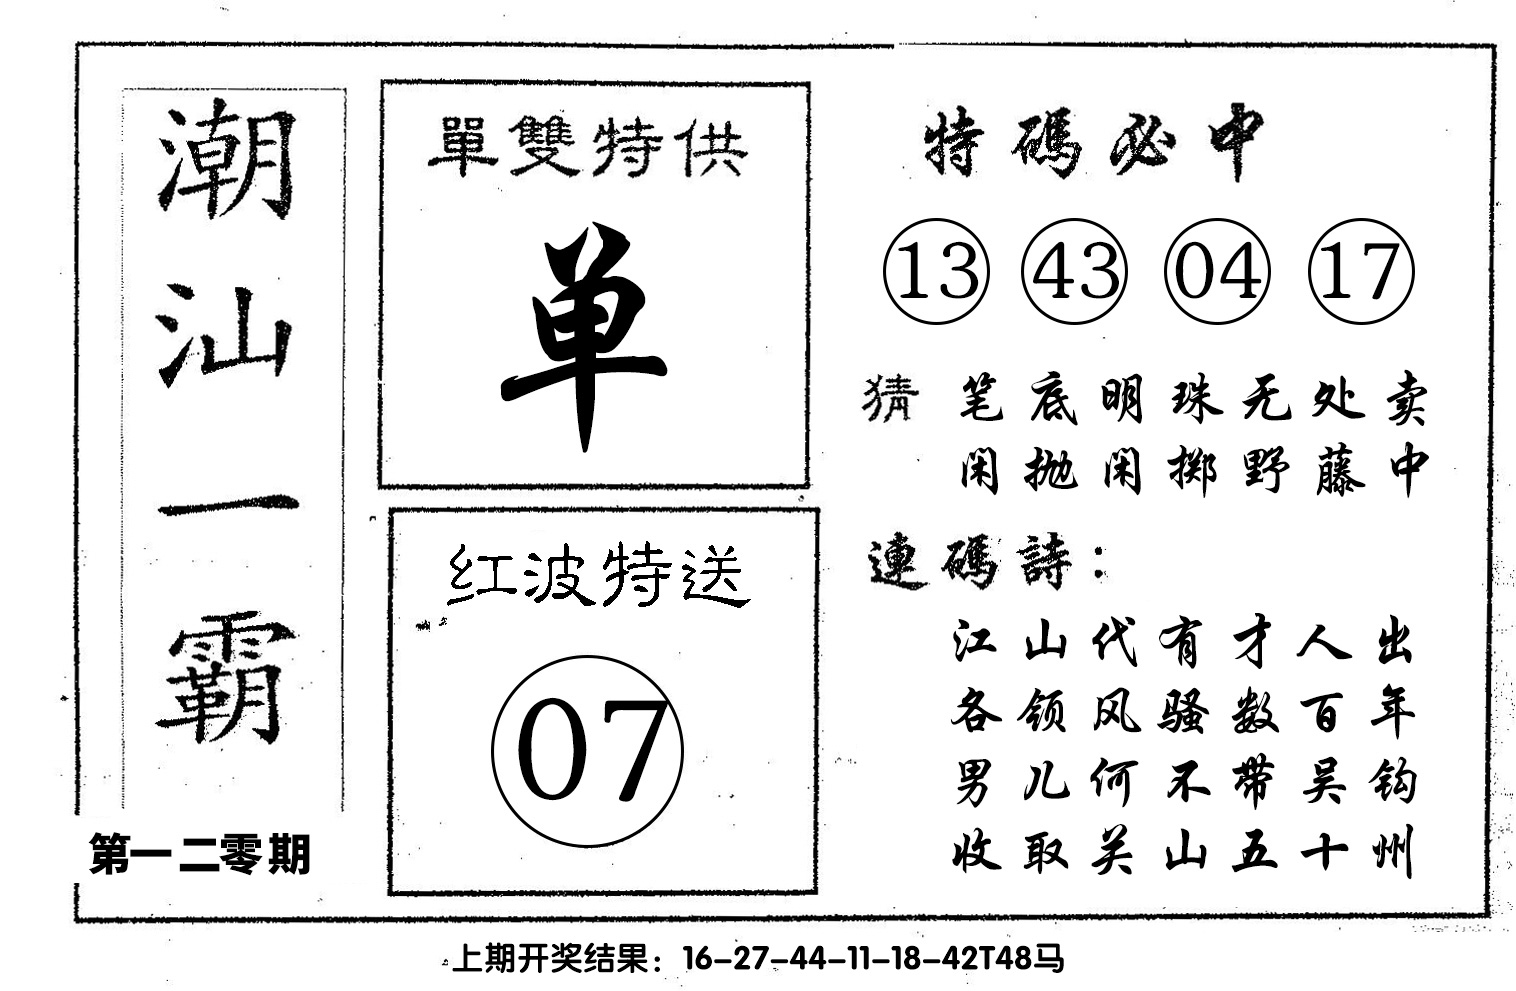 潮汕一霸
第一二零期
單雙特供
单
红波特送
07
特碼必中
13 43 04 17
猜 笔底明珠无处卖
闲抛闲掷野藤中
連碼詩：
江山代有才人出
各领风骚数百年
男儿何不带吴钩
收取关山五十州
上期开奖结果：16-27-44-11-18-42T48马